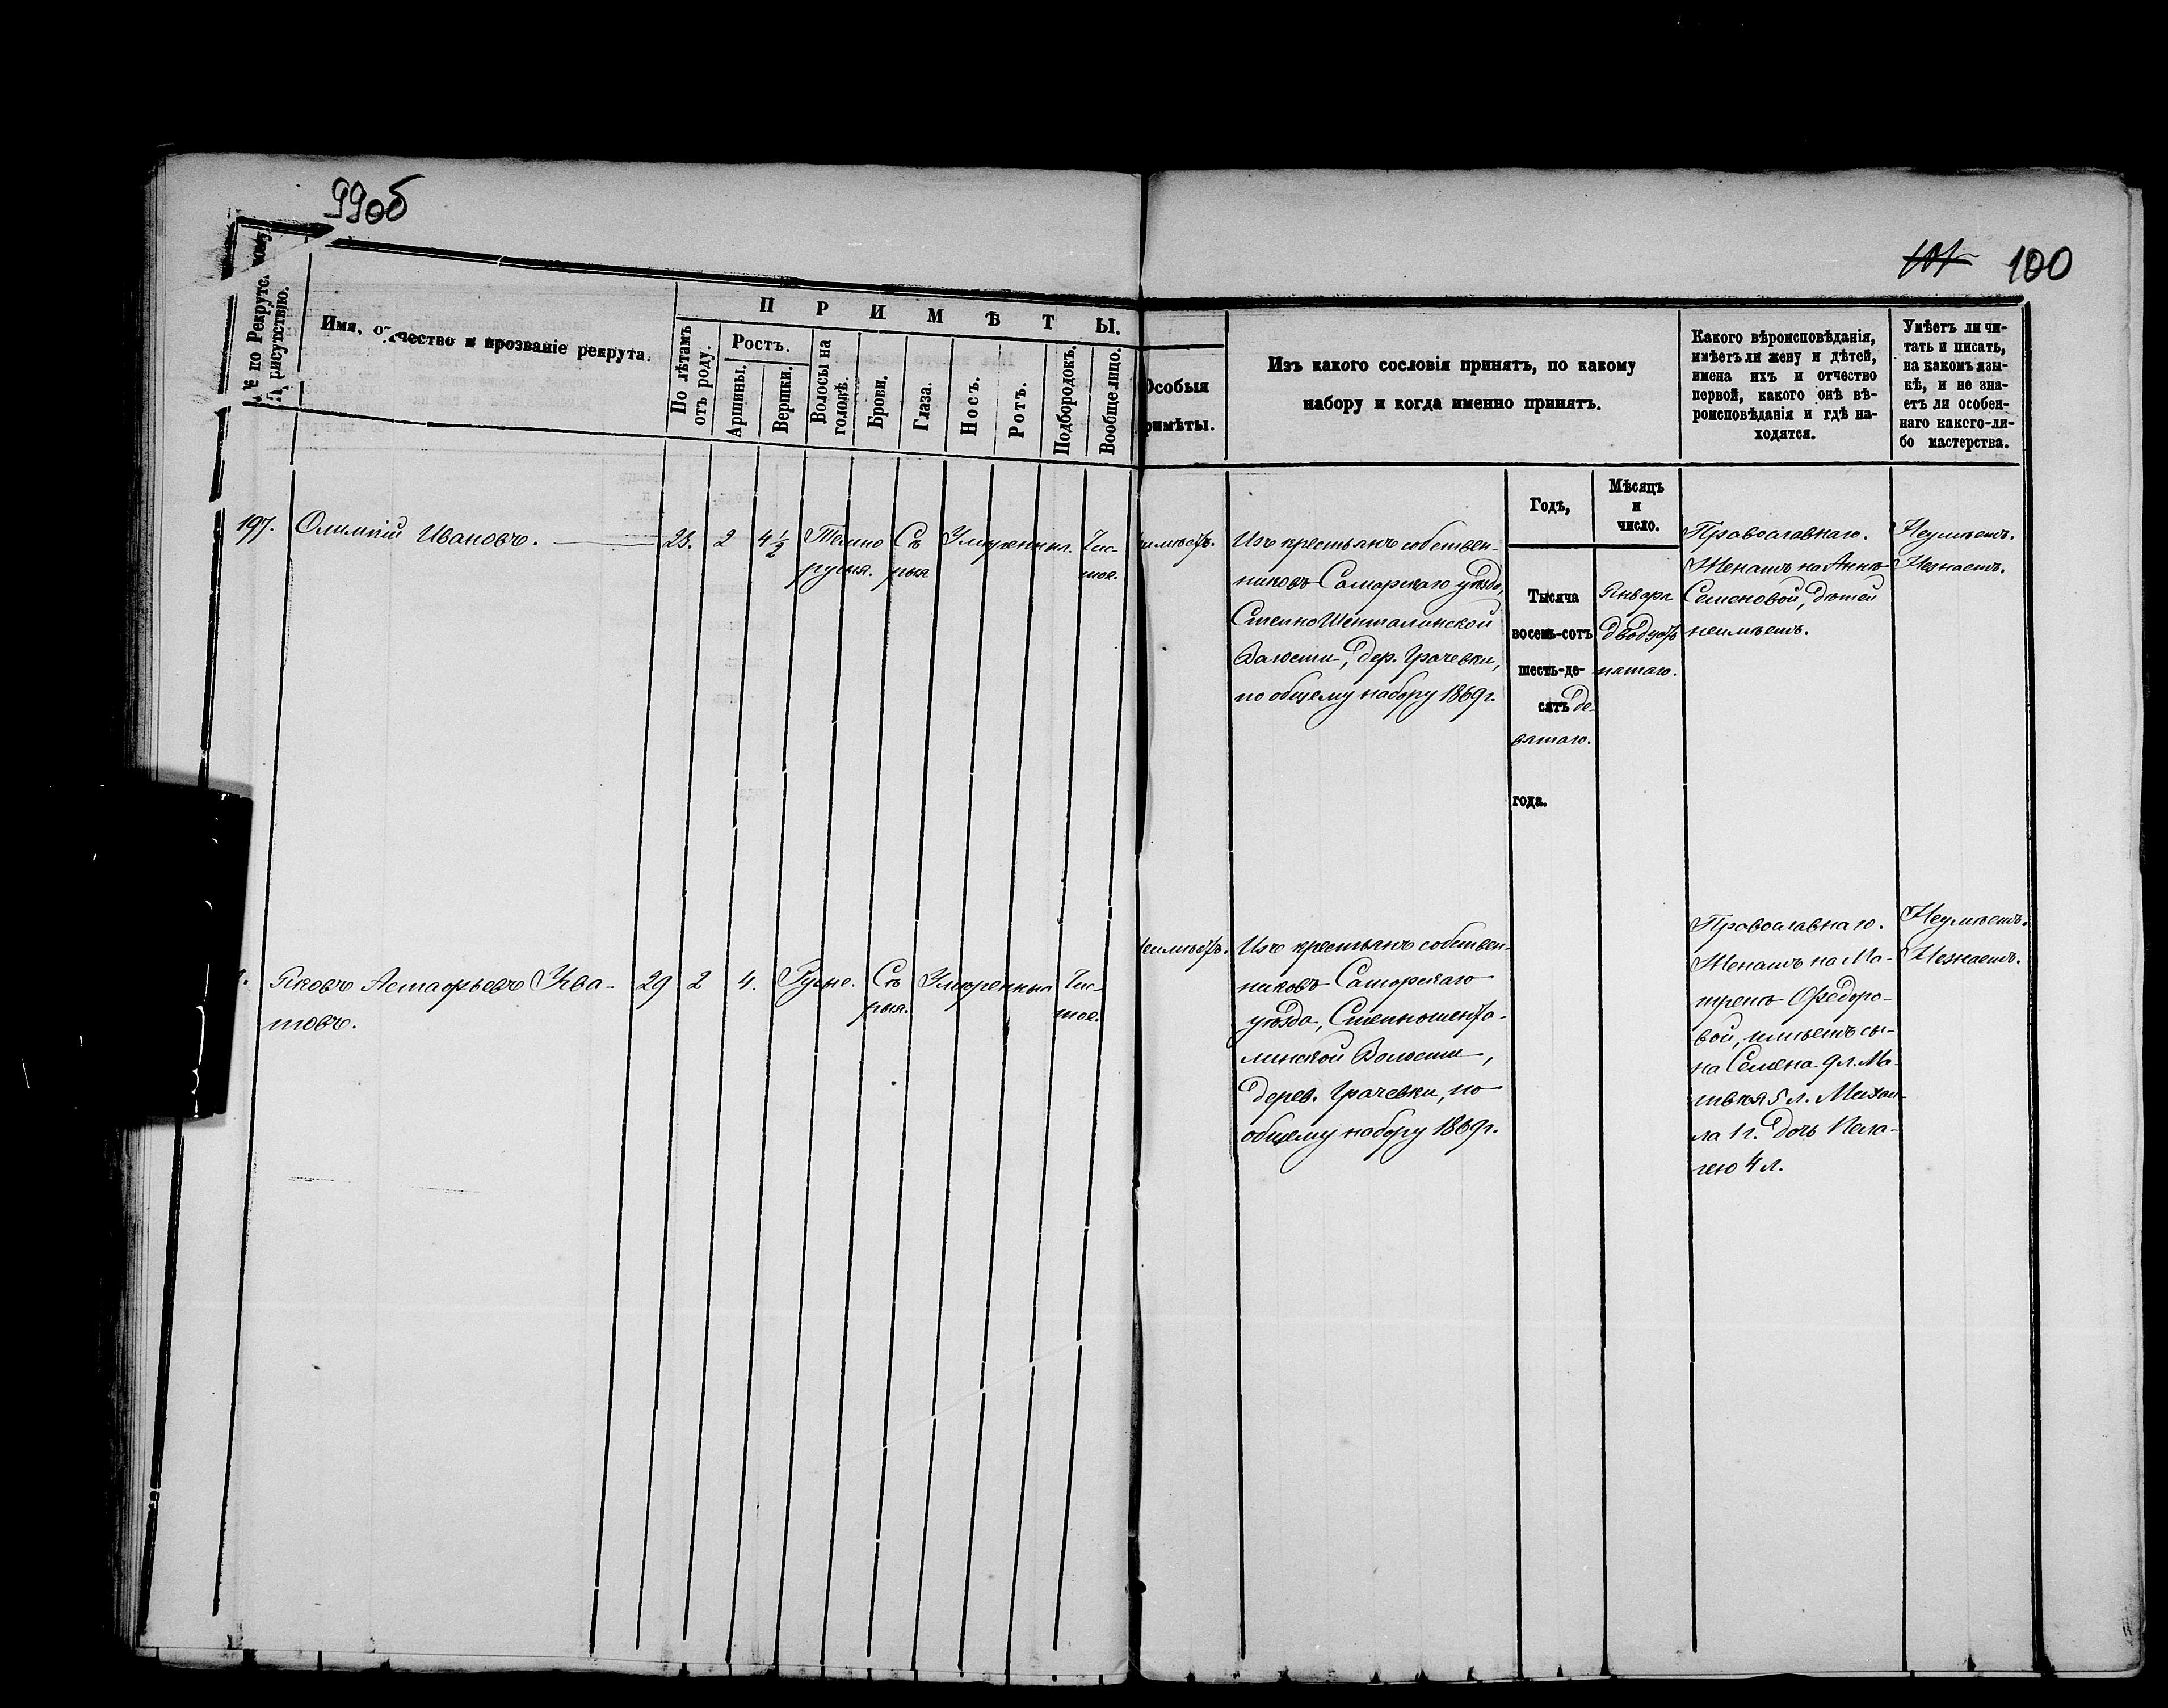 99об
101 100
№ по Рекрутскому
Присутствію.
Имя, отчество и прозваніе рекрута.
ПРИМѢТЫ.
По лѣтамъ
отъ роду.
Ростъ.
Аршины.
Вершки.
Волосы на
головѣ.
Брови.
Глаза.
Носъ.
Ротъ.
Подбородокъ.
Вообще лицо.
Особыя
римѣты.
Изъ какого сословія принятъ, по какому
набору и когда именно принятъ.
Какого вѣроисповѣданія,
имѣетъ ли жену и дѣтей,
имена ихъ и отчество
первой, какого онѣ вѣ-
роисповѣданія и гдѣ на-
ходятся.
Умѣетъ ли чи-
тать и писать,
на какомъ язы-
кѣ, и не зна-
етъ ли особен-
наго какого-ли-
бо мастерства.
Годъ,
Мѣсяцъ
и
число.
197.
Олимпій Ивановъ.
23. 2 4½
Темно
русыя.
Сѣ
рыя
Умѣренныя.
Чис-
тое.
имѣетъ.
Изъ крестьянъ собствен-
никовъ Самарскаго уѣзда,
Степно Шенталинской
Волости, дер. Грачевки,
по общему набору 1869 г.
Тысяча
восемь-сотъ
шесть-де-
сятъ де-
вятаго.
года.
Января
двадцать
пятаго.
Православнаго.
Женатъ на Аннѣ
Семеновой, дѣтей
неимѣетъ.
Неумѣетъ.
Незнаетъ.
Яковъ Астафьевъ Ква-
товъ.
29 2 4.
Русые.
Сѣ
рыя.
Умѣренныя
Чис-
тое.
еимѣетъ.
Изъ крестьянъ собствен-
никовъ Самарскаго
уѣзда, Степношента-
линской Волости,
дерев. Грачевки, по
общему набору 1869 г.
Православнаго.
Женатъ на Ма-
тренѣ Федоро-
вой, имѣетъ сы-
на Семена 9 л. Ма-
твѣя 5 л. Михаи-
ла 1 г. дочь Пела-
гею 4 л.
Неумѣетъ.
Незнаетъ.